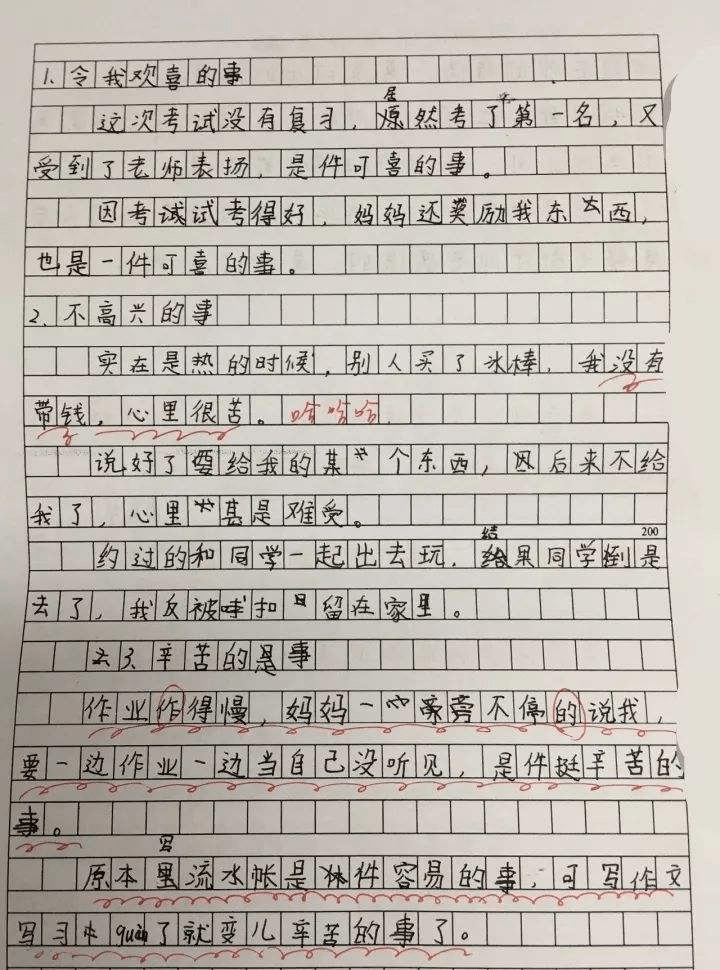 1.令我欢喜的事
这次考试没有复习，居然考了第一名，又
受到了老师表扬，是件可喜的事。
因考试试考得好，妈妈还奖励我东西，
也是一件可喜的事。
2.不高兴的事
实在是热的时候，别人买了冰棒，我没有
带钱，心里很苦。哈哈哈
说好了要给我的某个东西，因后来不给
我了，心里甚是难受。
200
约过的和同学一起出去玩，结果同学倒是
去了，我反被扣留在家里。
3、辛苦的事
作业作得慢，妈妈一旁不停的说我，
要一边作业一边当自己没听见，是件挺辛苦的
事。
原本写流水帐是件容易的事，可写作文
写习quàn了就变儿辛苦的事了。